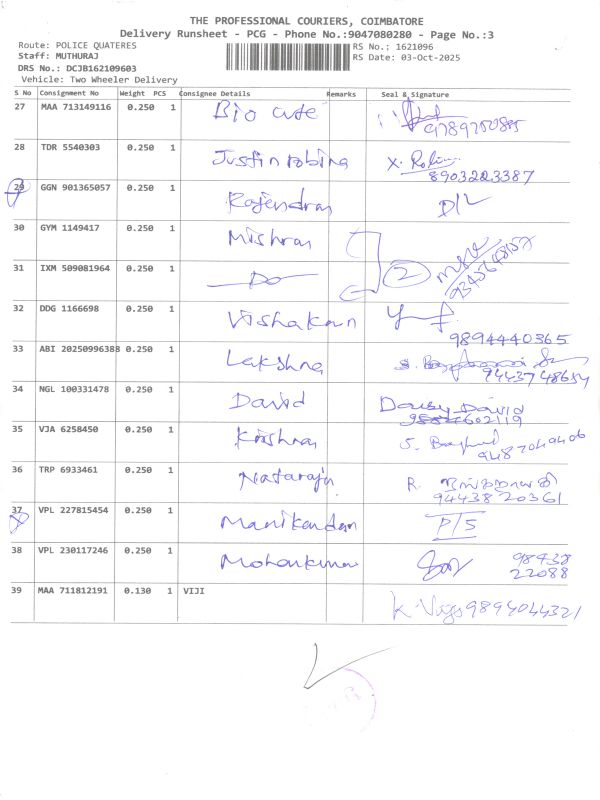 THE PROFESSIONAL COURIERS, COIMBATORE
Delivery Runsheet - PCG - Phone No.:9047080280 - Page No.:3
Route: POLICE QUATERES RS No.; 1621096
Staff: MUTHURAJ RS Date: 03-Oct-2025
DRS No.: DCJB162109603
Vehicle: Two Wheeler Delivery
S No Consignment No Weight PCS Consignee Details Remarks Seal & Signature
27 MAA 713149116 0.250 1 Bio cute
28 TDR 5540303 0.250 1 Justin robina X. Robin
8903223387
29 GGN 901365057 0.250 1 Rajendran D/L
30 GYM 1149417 0.250 1 Mishran
31 IXM 509081964 0.250 1 Do 2
32 DDG 1166698 0.250 1 Vishakan
9894440365
33 ABI 20250996388 0.250 1 Lakshna
9443748654
34 NGL 100331478 0.250 1 David Daisy David
35 VJA 6258450 0.250 1 Krishnan S.
9487040406
36 TRP 6933461 0.250 1 Nataraju R.
9443820361
37 VPL 227815454 0.250 1 Manikandan P/S
38 VPL 230117246 0.250 1 Mohankumar 98438
22088
39 MAA 711812191 0.130 1 VIJI K. Viji 9894044321